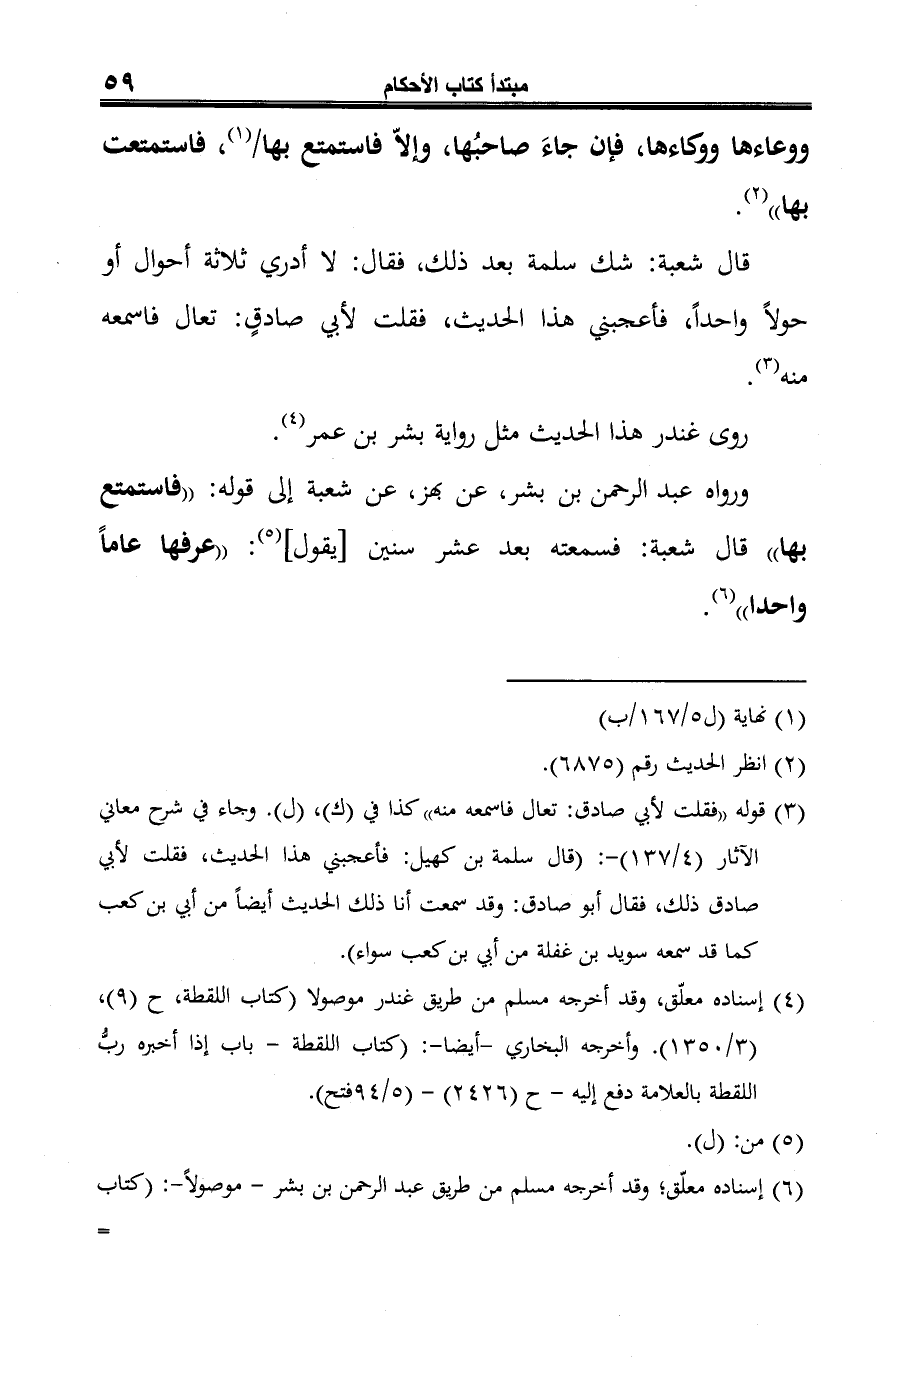 مبتدأ كتاب الأحكام ٥٩
ووعاءها ووكاءها، فإن جاءَ صاحبُها، وإلاّ فاستمتع بها/(١)، فاستمتعت
بها»(٢).
قال شعبة: شك سلمة بعد ذلك، فقال: لا أدري ثلاثة أحوال أو
حولاً واحداً، فأعجبني هذا الحديث، فقلت لأبي صادقٍ: تعال فاسمعه
منه(٣).
روى غندر هذا الحديث مثل رواية بشر بن عمر(٤).
ورواه عبد الرحمن بن بشر، عن بهز، عن شعبة إلى قوله: «فاستمتع
بها» قال شعبة: فسمعته بعد عشر سنين [يقول](٥): «عرفها عاماً
واحدا»(٦).
(١) نهاية (ل٥/١٦٧/ب)
(٢) انظر الحديث رقم (٦٨٧٥).
(٣) قوله «فقلت لأبي صادق: تعال فاسمعه منه» كذا في (ك)، (ل). وجاء في شرح معاني
الآثار (٤/١٣٧)-: (قال سلمة بن كهيل: فأعجبني هذا الحديث، فقلت لأبي
صادق ذلك، فقال أبو صادق: وقد سمعت أنا ذلك الحديث أيضاً من أبي بن كعب
كما قد سمعه سويد بن غفلة من أبي بن كعب سواء).
(٤) إسناده معلّق، وقد أخرجه مسلم من طريق غندر موصولا (كتاب اللقطة، ح (٩)،
(٣/١٣٥٠). وأخرجه البخاري -أيضا-: (كتاب اللقطة - باب إذا أخبره ربُّ
اللقطة بالعلامة دفع إليه - ح (٢٤٢٦) - (٥/٩٤فتح).
(٥) من: (ل).
(٦) إسناده معلّق؛ وقد أخرجه مسلم من طريق عبد الرحمن بن بشر - موصولاً-: (كتاب
=